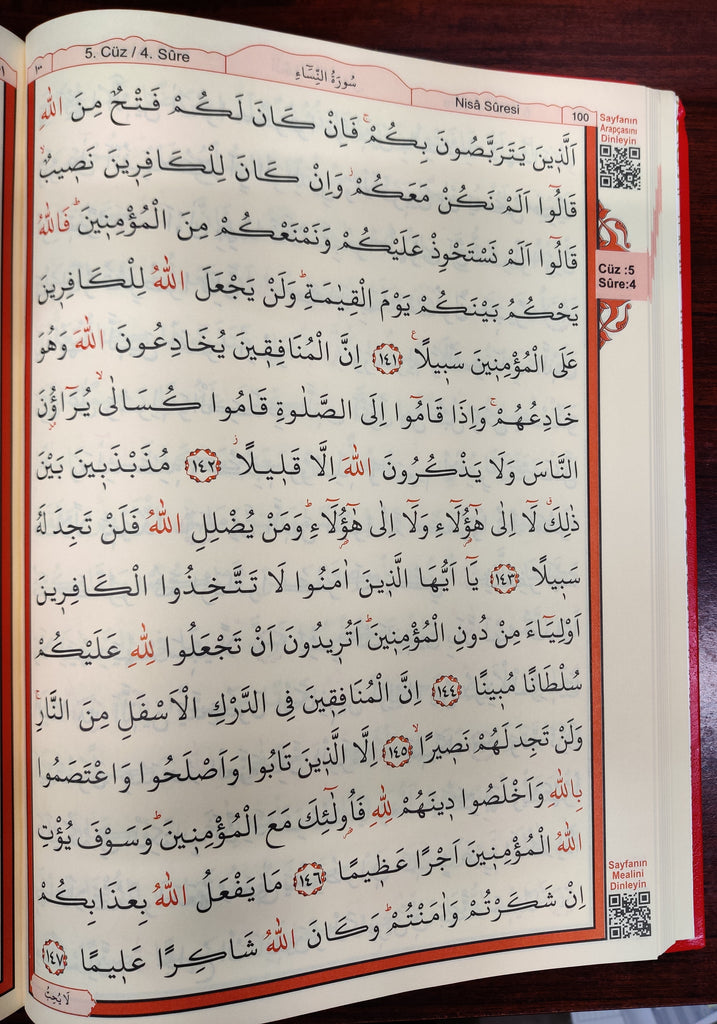 5. Cüz / 4. Sûre
سُورَةُ النِّسَٓاءِ
Nisâ Sûresi
100
اَلَّذ۪ينَ يَتَرَبَّصُونَ بِكُمْۚ فَاِنْ كَانَ لَكُمْ فَتْحٌ مِنَ اللّٰهِ
قَالُٓوا اَلَمْ نَكُنْ مَعَكُمْۘ وَاِنْ كَانَ لِلْكَافِر۪ينَ نَص۪يبٌۙ
قَالُٓوا اَلَمْ نَسْتَحْوِذْ عَلَيْكُمْ وَنَمْنَعْكُمْ مِنَ الْمُؤْمِن۪ينَۜ فَاللّٰهُ
يَحْكُمُ بَيْنَكُمْ يَوْمَ الْقِيٰمَةِۜ وَلَنْ يَجْعَلَ اللّٰهُ لِلْكَافِر۪ينَ
عَلَى الْمُؤْمِن۪ينَ سَب۪يلًا۟ ﴿١٤١﴾ اِنَّ الْمُنَافِق۪ينَ يُخَادِعُونَ اللّٰهَ وَهُوَ
خَادِعُهُمْۚ وَاِذَا قَامُٓوا اِلَى الصَّلٰوةِ قَامُوا كُسَالٰىۙ يُرَٓاؤُ۫نَ
النَّاسَ وَلَا يَذْكُرُونَ اللّٰهَ اِلَّا قَل۪يلًاۘ ﴿١٤٢﴾ مُذَبْذَب۪ينَ بَيْنَ
ذٰلِكَۗ لَٓا اِلٰى هٰٓؤُ۬لَٓاءِ وَلَٓا اِلٰى هٰٓؤُ۬لَٓاءِۜ وَمَنْ يُضْلِلِ اللّٰهُ فَلَنْ تَجِدَ لَهُ
سَب۪يلًا ﴿١٤٣﴾ يَٓا اَيُّهَا الَّذ۪ينَ اٰمَنُوا لَا تَتَّخِذُوا الْكَافِر۪ينَ
اَوْلِيَٓاءَ مِنْ دُونِ الْمُؤْمِن۪ينَۜ اَتُر۪يدُونَ اَنْ تَجْعَلُوا لِلّٰهِ عَلَيْكُمْ
سُلْطَانًا مُب۪ينًا ﴿١٤٤﴾ اِنَّ الْمُنَافِق۪ينَ فِي الدَّرْكِ الْاَسْفَلِ مِنَ النَّارِۚ
وَلَنْ تَجِدَ لَهُمْ نَص۪يرًاۙ ﴿١٤٥﴾ اِلَّا الَّذ۪ينَ تَابُوا وَاَصْلَحُوا وَاعْتَصَمُوا
بِاللّٰهِ وَاَخْلَصُوا د۪ينَهُمْ لِلّٰهِ فَاُو۬لٰٓئِكَ مَعَ الْمُؤْمِن۪ينَۜ وَسَوْفَ يُؤْتِ
اللّٰهُ الْمُؤْمِن۪ينَ اَجْرًا عَظ۪يمًا ﴿١٤٦﴾ مَا يَفْعَلُ اللّٰهُ بِعَذَابِكُمْ
اِنْ شَكَرْتُمْ وَاٰمَنْتُمْۜ وَكَانَ اللّٰهُ شَاكِرًا عَل۪يمًا ﴿١٤٧﴾
لَا يُحِبُّ
Sayfanın
Arapçasını
Dinleyin
Cüz :5
Sûre:4
Sayfanın
Mealini
Dinleyin